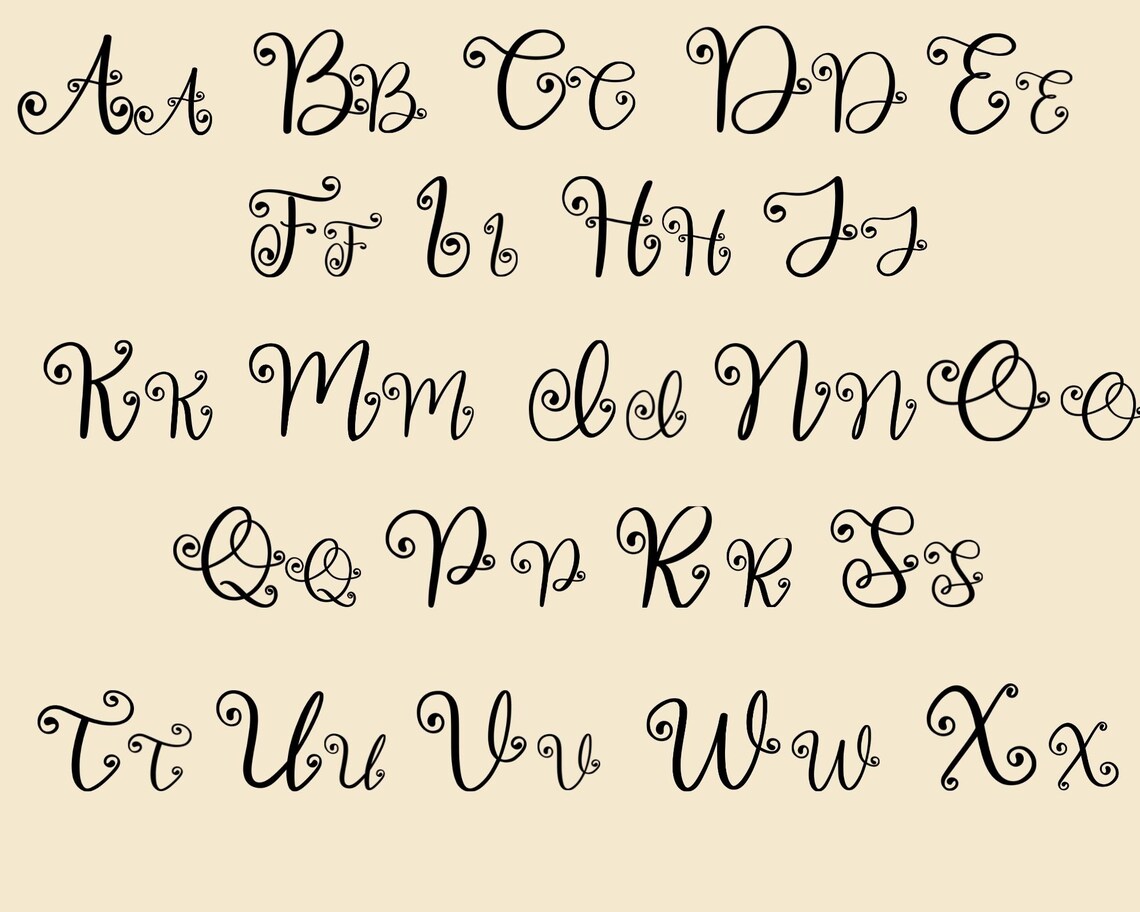 Aa Bb Cc Dd Ee
Ff Ii Hh Jj
Kk Mm Ll Nn Oo
Qq Pp Rr Ss
Tt Uu Vv Ww Xx